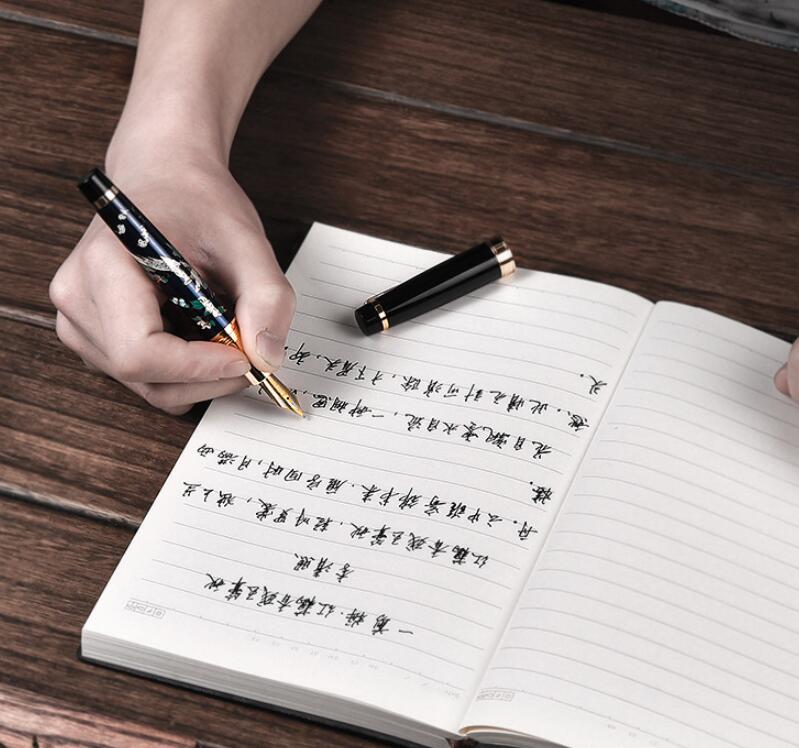 一剪梅·红藕香残玉簟秋
李清照
红藕香残玉簟秋，轻解罗裳，独上兰
舟。云中谁寄锦书来，雁字回时，月满西
楼。
花自飘零水自流，一种相思，
愁。此情无计可消除，才下眉头，却
头。